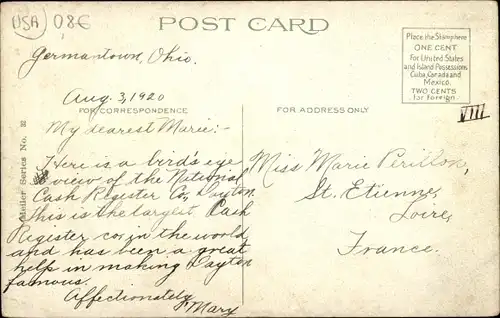 USA 08€
POST CARD
Place the Stamp here
ONE CENT
For United States
and Island Possessions
Cuba, Canada and
Mexico.
TWO CENTS
for Foreign.
VIII
Germantown, Ohio.
Aug. 3, 1920
FOR CORRESPONDENCE
FOR ADDRESS ONLY
My dearest Marie:-
Here is a bird's eye
view of the National
Cash Register Co., Dayton.
This is the largest Cash
Register co. in the world
and has been a great
help in making Dayton
famous.
Affectionately
Mary
Miss Marie Perillon,
St. Etienne,
Loire,
France.
Atelier Series No. 32